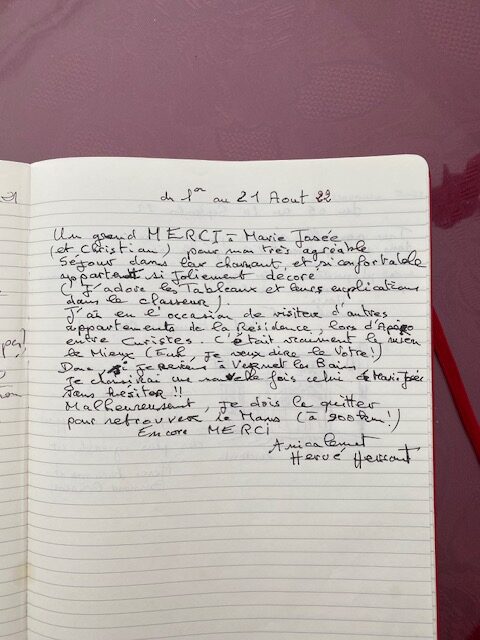 du 1er au 21 Aout 22
Un grand MERCI à Marie Josée
(et Christian) pour mon très agréable
Séjour dans leur charmant, et si confortable
appartemt si joliement décoré
(J'adore les Tableaux et leurs explications
dans le classeur).
J'ai eu l'occasion de visiter d'autres
appartements de la Résidence, lors d'Apéro
entre Curistes. C'était vraiment le mien
le Mieux (Euh, je veux dire le Votre!)
Donc, si je reviens à Vernet les Bains
Je choisirai une nouvelle fois celui de Marie José
sans hésiter !!
Malheureusemt, je dois le quitter
pour retrouver le Mans (à 900km!)
Encore MERCI
Amicalement
Hervé